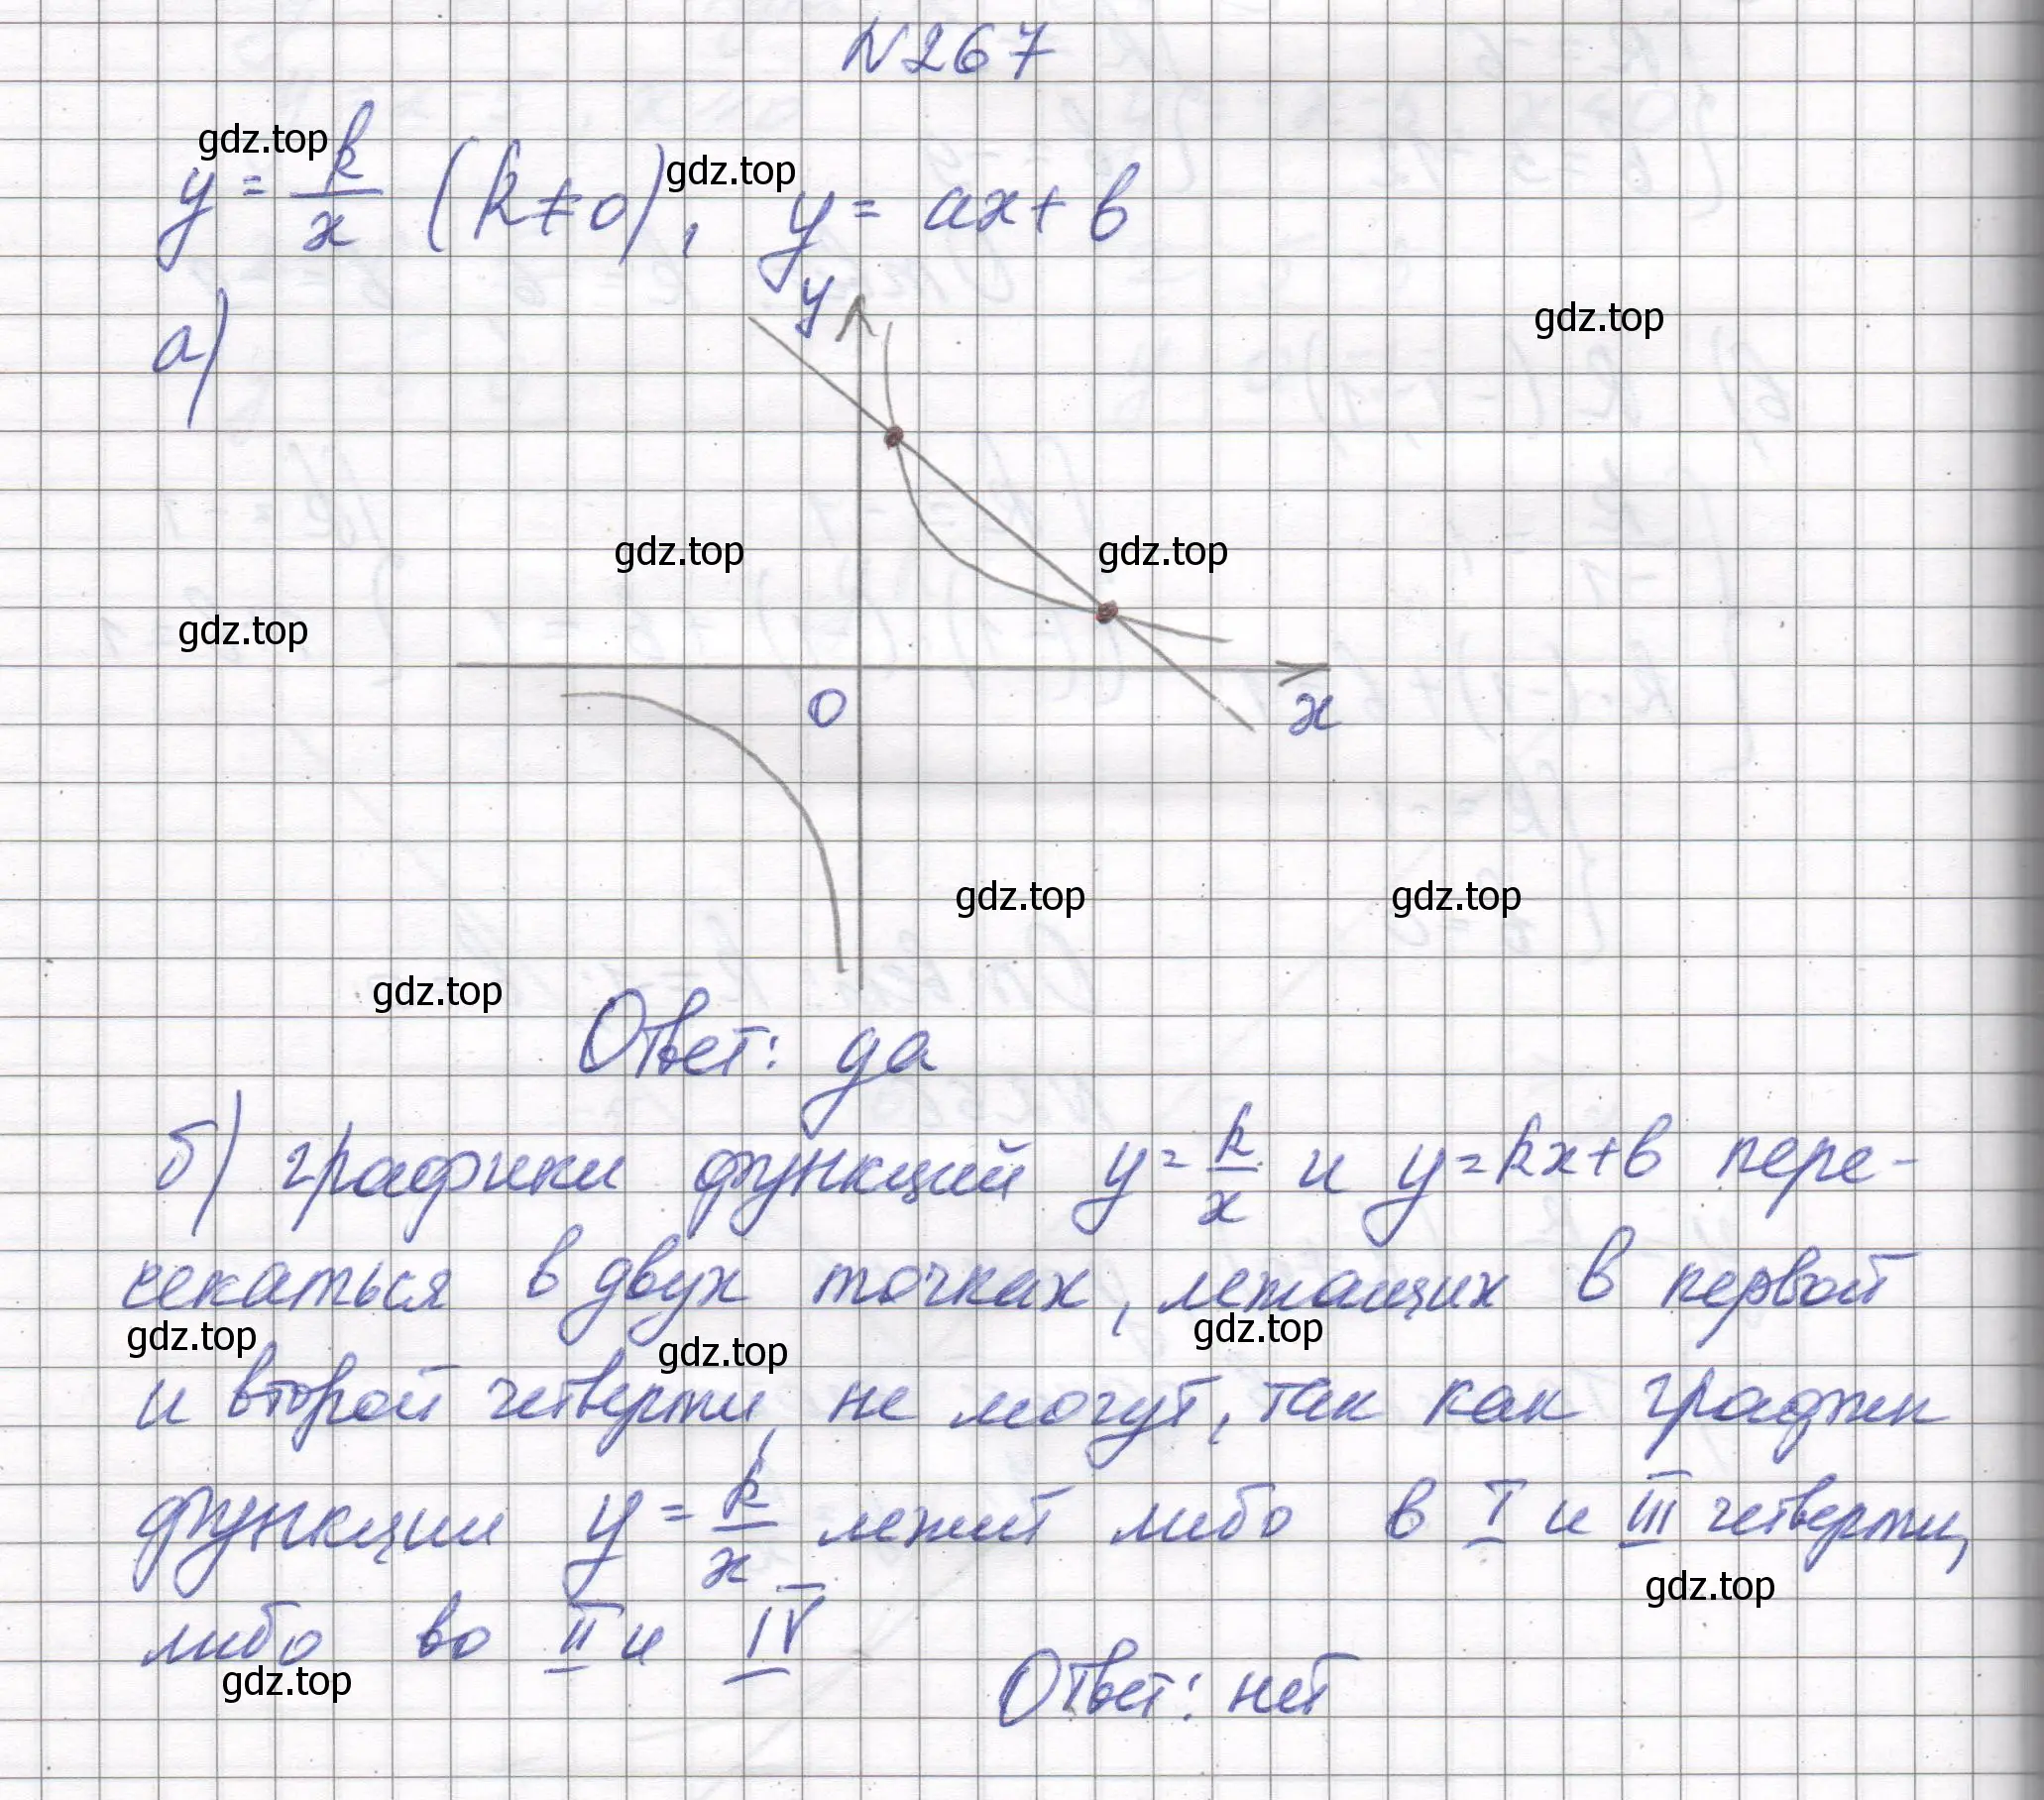 №267
gdz.top
y = k/x (k≠0), y = ax + b
gdz.top
а)
y
gdz.top
gdz.top
gdz.top
gdz.top
0
x
gdz.top
gdz.top
gdz.top
Ответ: да
б) графики функций y = k/x и y = kx + b пере-
секаться в двух точках, лежащих в первой
gdz.top
gdz.top
gdz.top
и второй четверти, не могут, так как график
функции y = k/x лежит либо в I и III четверти,
gdz.top
либо во II и IV
gdz.top
Ответ: нет